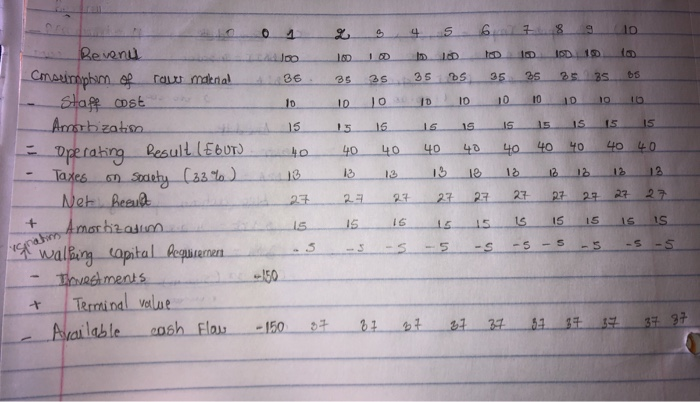 0 1 2 3 4 5 6 7 8 9 10
Revenu 100 100 100 100 100 100 100 100 100 100
Consumption of raw material 35 35 35 35 35 35 35 35 35 35
- Staff cost 10 10 10 10 10 10 10 10 10 10
Amortization 15 15 15 15 15 15 15 15 15 15
= Operating Result (EBIT) 40 40 40 40 40 40 40 40 40 40
- Taxes on society (33%) 13 13 13 13 13 13 13 13 13 13
Net Result 27 27 27 27 27 27 27 27 27 27
+ Amortization 15 15 15 15 15 15 15 15 15 15
Walking capital Requiremen -5 -5 -5 -5 -5 -5 -5 -5 -5 -5
- Investments -150
+ Terminal value
- Available cash Flow -150 37 37 37 37 37 37 37 37 37 37